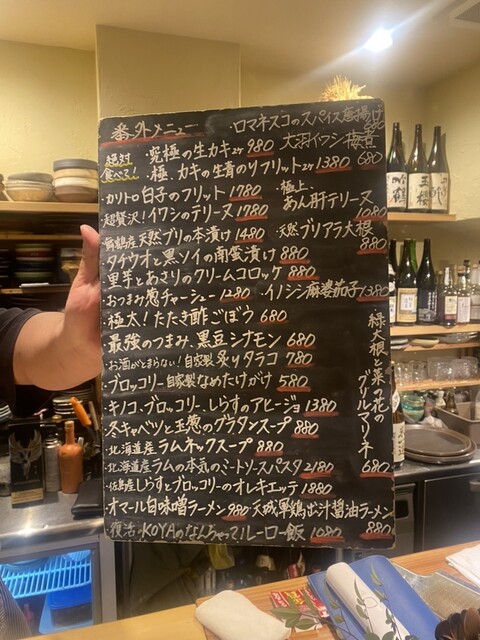 番外メニュー
・ロマネスコのスパイス唐揚げ 680
絶対食べろ! ・究極の生カキ2ケ 980
大羽イワシ梅煮 680
・極、カキの生青のりフリット2ケ 1380
・カリトロ白子のフリット 1780
・極上、あん肝テリーヌ 1080
・超贅沢!イワシのテリーヌ 1780
・舞鶴産天然ブリの本漬け 1480
・天然ブリアラ大根 880
・タチウオと黒ソイの南蛮漬け 880
・里芋とあさりのクリームコロッケ 880
・おつまみ葱チャーシュー 1280
・イノシシ麻婆茄子 1380
・極太!たたき酢ごぼう 680
・最強のつまみ、黒豆シナモン 680
・お酒がとまらない!自家製炙りタラコ 780
・ブロッコリー自家製なめたけがけ 580
・キノコ、ブロッコリー、しらすのアヒージョ 1380
・冬キャベツと玉葱のグラタンスープ 880
・緑大根と菜の花のグリルマリーネ 680
・北海道産ラムネックスープ 880
・北海道産ラムの本気のミートソースパスタ 2180
・佐島産しらすとブロッコリーのオレキエッテ 1880
・オマール白味噌ラーメン 980
・天城軍鶏出汁醤油ラーメン 880
・復活・KOYAのなんちゃってルーロー飯 1080